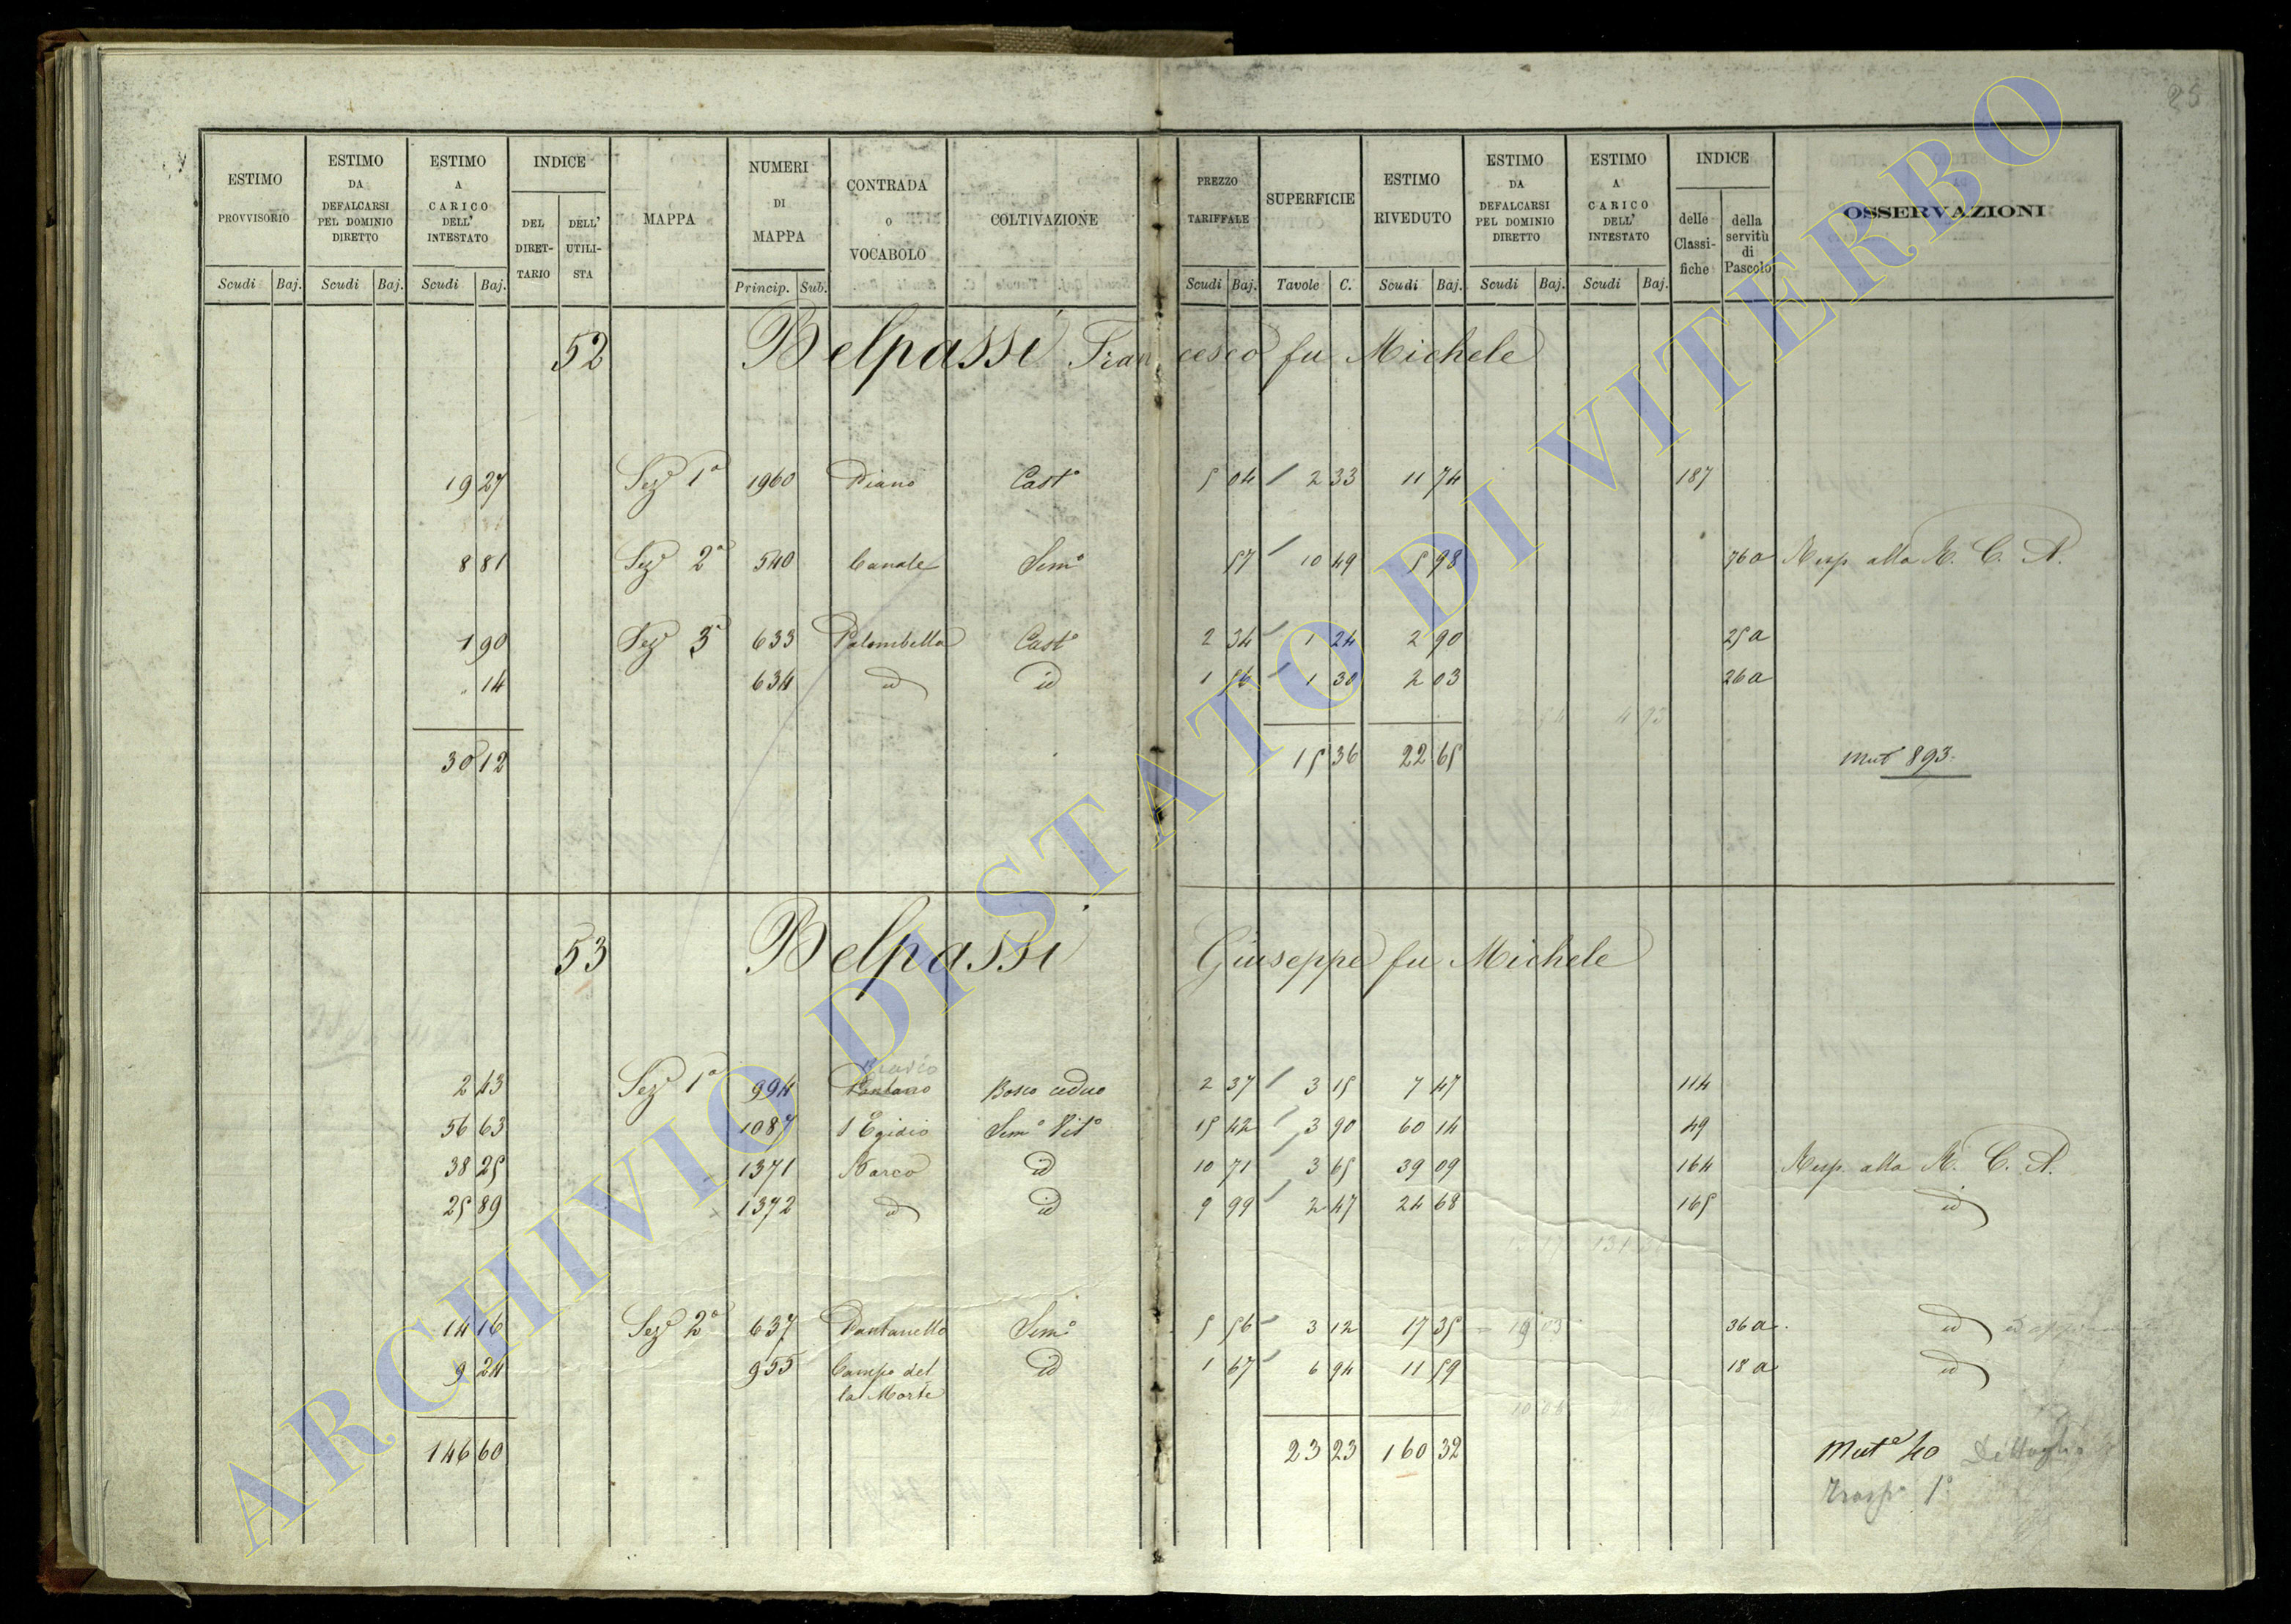 25
ESTIMO PROVVISORIO Scudi Baj.
ESTIMO DA DEFALCARSI PEL DOMINIO DIRETTO Scudi Baj.
ESTIMO A CARICO DELL' INTESTATO Scudi Baj.
INDICE DEL DIRET-TARIO DELL' UTILI-STA
MAPPA
NUMERI DI MAPPA Princip. Sub.
CONTRADA o VOCABOLO
COLTIVAZIONE
PREZZO TARIFFALE Scudi Baj.
SUPERFICIE Tavole C.
ESTIMO RIVEDUTO Scudi Baj.
ESTIMO DA DEFALCARSI PEL DOMINIO DIRETTO Scudi Baj.
ESTIMO A CARICO DELL' INTESTATO Scudi Baj.
INDICE delle Classi-fiche della servitù di Pascolo
OSSERVAZIONI
52 Belpassi Francesco fu Michele
19 27 Seze 1a 1960 Piano Casto 5 04 2 33 11 74 187
8 81 Seze 2a 540 Canale Semo 57 10 49 5 98 76a Resp alla R. C. A.
1 90 Seze 3a 633 Palombella Casto 2 34 1 24 2 90 25a
" 14 634 id id 1 56 1 30 2 03 26a
30 12 15 36 22 65 Mut 893.
53 Belpassi Giuseppe fu Michele
2 43 Seze 1a 994 Pantano Bosco ceduo 2 37 3 15 7 47 114
56 63 1087 S Egidio Semo Vito 15 42 3 90 60 14 49
38 25 1371 Barco id 10 71 3 65 39 09 164 Resp. alla R. C. A.
25 89 1372 id id 9 99 2 47 24 68 165 id
14 16 Seze 2a 637 Pantanello Semo 5 56 3 12 17 35 = 19 03 36a id
9 24 955 Campo del id 1 67 6 94 11 59 18a id
la Morte
146 60 23 23 160 32 Muta 40 Dettaglio
Traspo 1o
ARCHIVIO DI STATO DI VITERBO